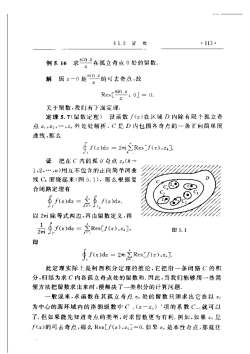 §5.2 留 数 ·113·
例 5.16 求 sin z / z 在孤立奇点 0 处的留数.
解 因 z=0 是 sin z / z 的可去奇点,故
Res[sin z / z, 0] = 0.
关于留数,我们有下面定理.
定理 5.7(留数定理) 设函数 f(z) 在区域 D 内除有限个孤立奇
点 z₁,z₂,…,zₙ 外处处解析,C 是 D 内包围各奇点的一条正向简单闭
曲线,那么
∮_C f(z)dz = 2πi∑Res[f(z),z_k].
证 把在 C 内的孤立奇点 z_k(k=
1,2,…,n)用互不包含的正向简单闭曲
线 C_k 围绕起来(图5.1),那么根据复
合闭路定理有
∮_C f(z)dz = ∮_C₁ f(z)dz + … + ∮_Cₙ f(z)dz.
以 2πi 除等式两边,再由留数定义,得
1/2πi ∮_C f(z)dz = ∑Res[f(z),z_k],
图 5.1
即
∮_C f(z)dz = 2πi∑Res[f(z),z_k].
此定理实际上是柯西积分定理的推论,它把沿一条闭路 C 的积
分,归结为求 C 内各孤立奇点处的留数和.因此,当我们能够用一些简
便方法把留数求出来时,便解决了一类积分的计算问题.
一般说来,求函数在其孤立奇点 z₀ 处的留数只须求出它在以 z₀
为中心的圆环域内的洛朗级数中 C₋₁(z-z₀)⁻¹ 项的系数 C₋₁ 就可以
了.但如果能先知道奇点的类型,对求留数更为有利.例如,如果 z₀ 是
f(z) 的可去奇点,那么 Res[f(z),z₀]=0.如果 z₀ 是本性奇点,那就往